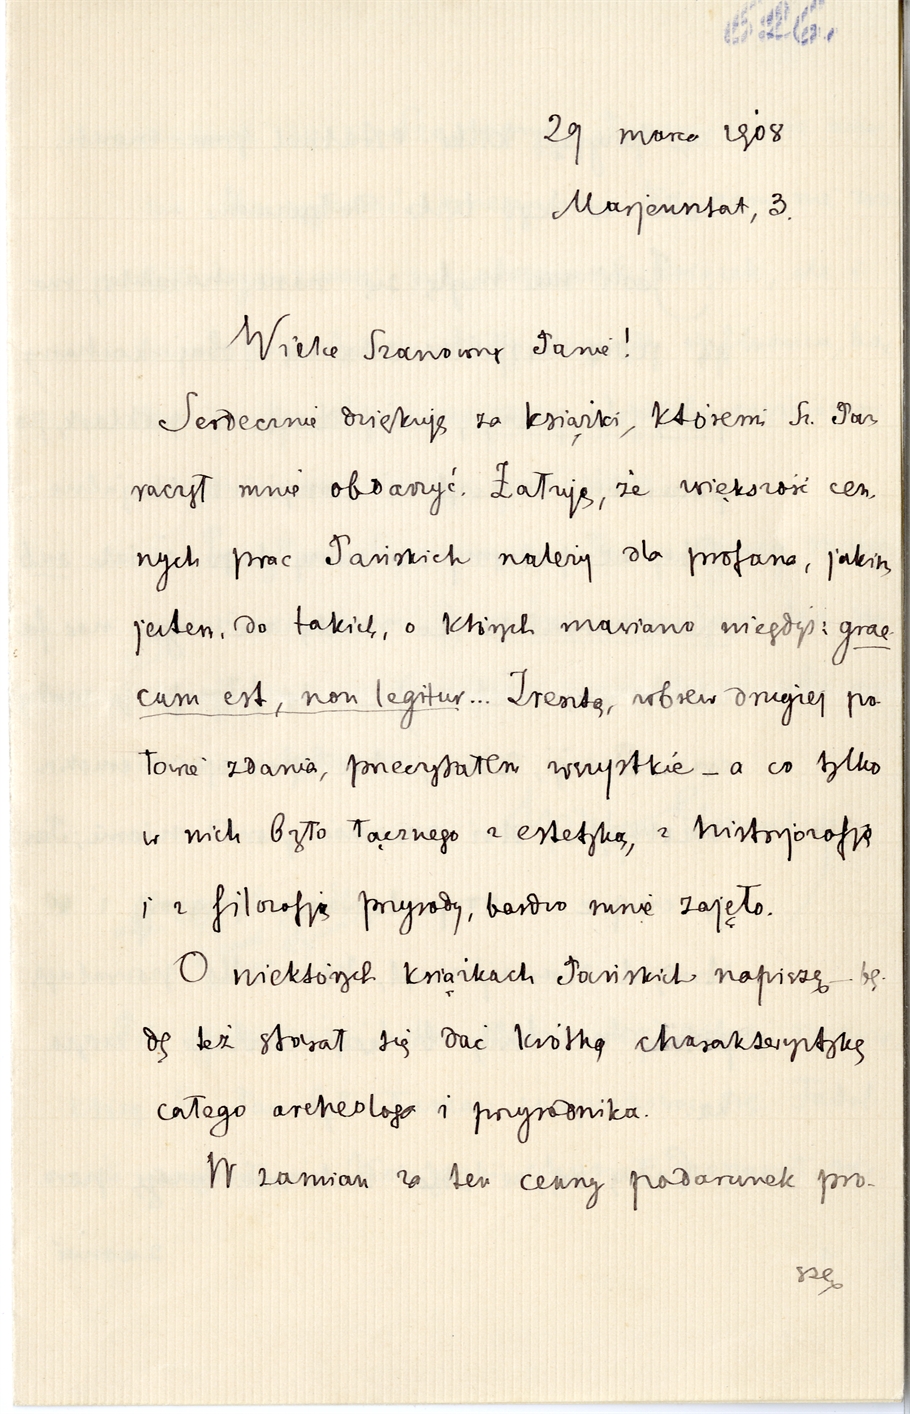 626.
29 marca 1908
Marjensztat, 3.
Wielce Szanowny Panie!
Serdecznie dziękuję za książki, któremi Sz. Pan
raczył mnie obdarzyć. Żałuję, że większość cen-
nych prac Pańskich należy dla profana, jakim
jestem, do takich, o których mawiano niegdyś: grae-
cum est, non legitur... Zresztą, wbrew drugiej po-
łowie zdania, przeczytałem wszystkie – a co tylko
w nich było łącznego z estetyką, z historjozofją
i z filozofją przyrody, bardzo mnie zajęło.
O niektórych książkach Pańskich napiszę – bę-
dę też starał się dać krótką charakterystykę
całego archeologa i przyrodnika.
W zamian za ten cenny podarunek pro-
szę